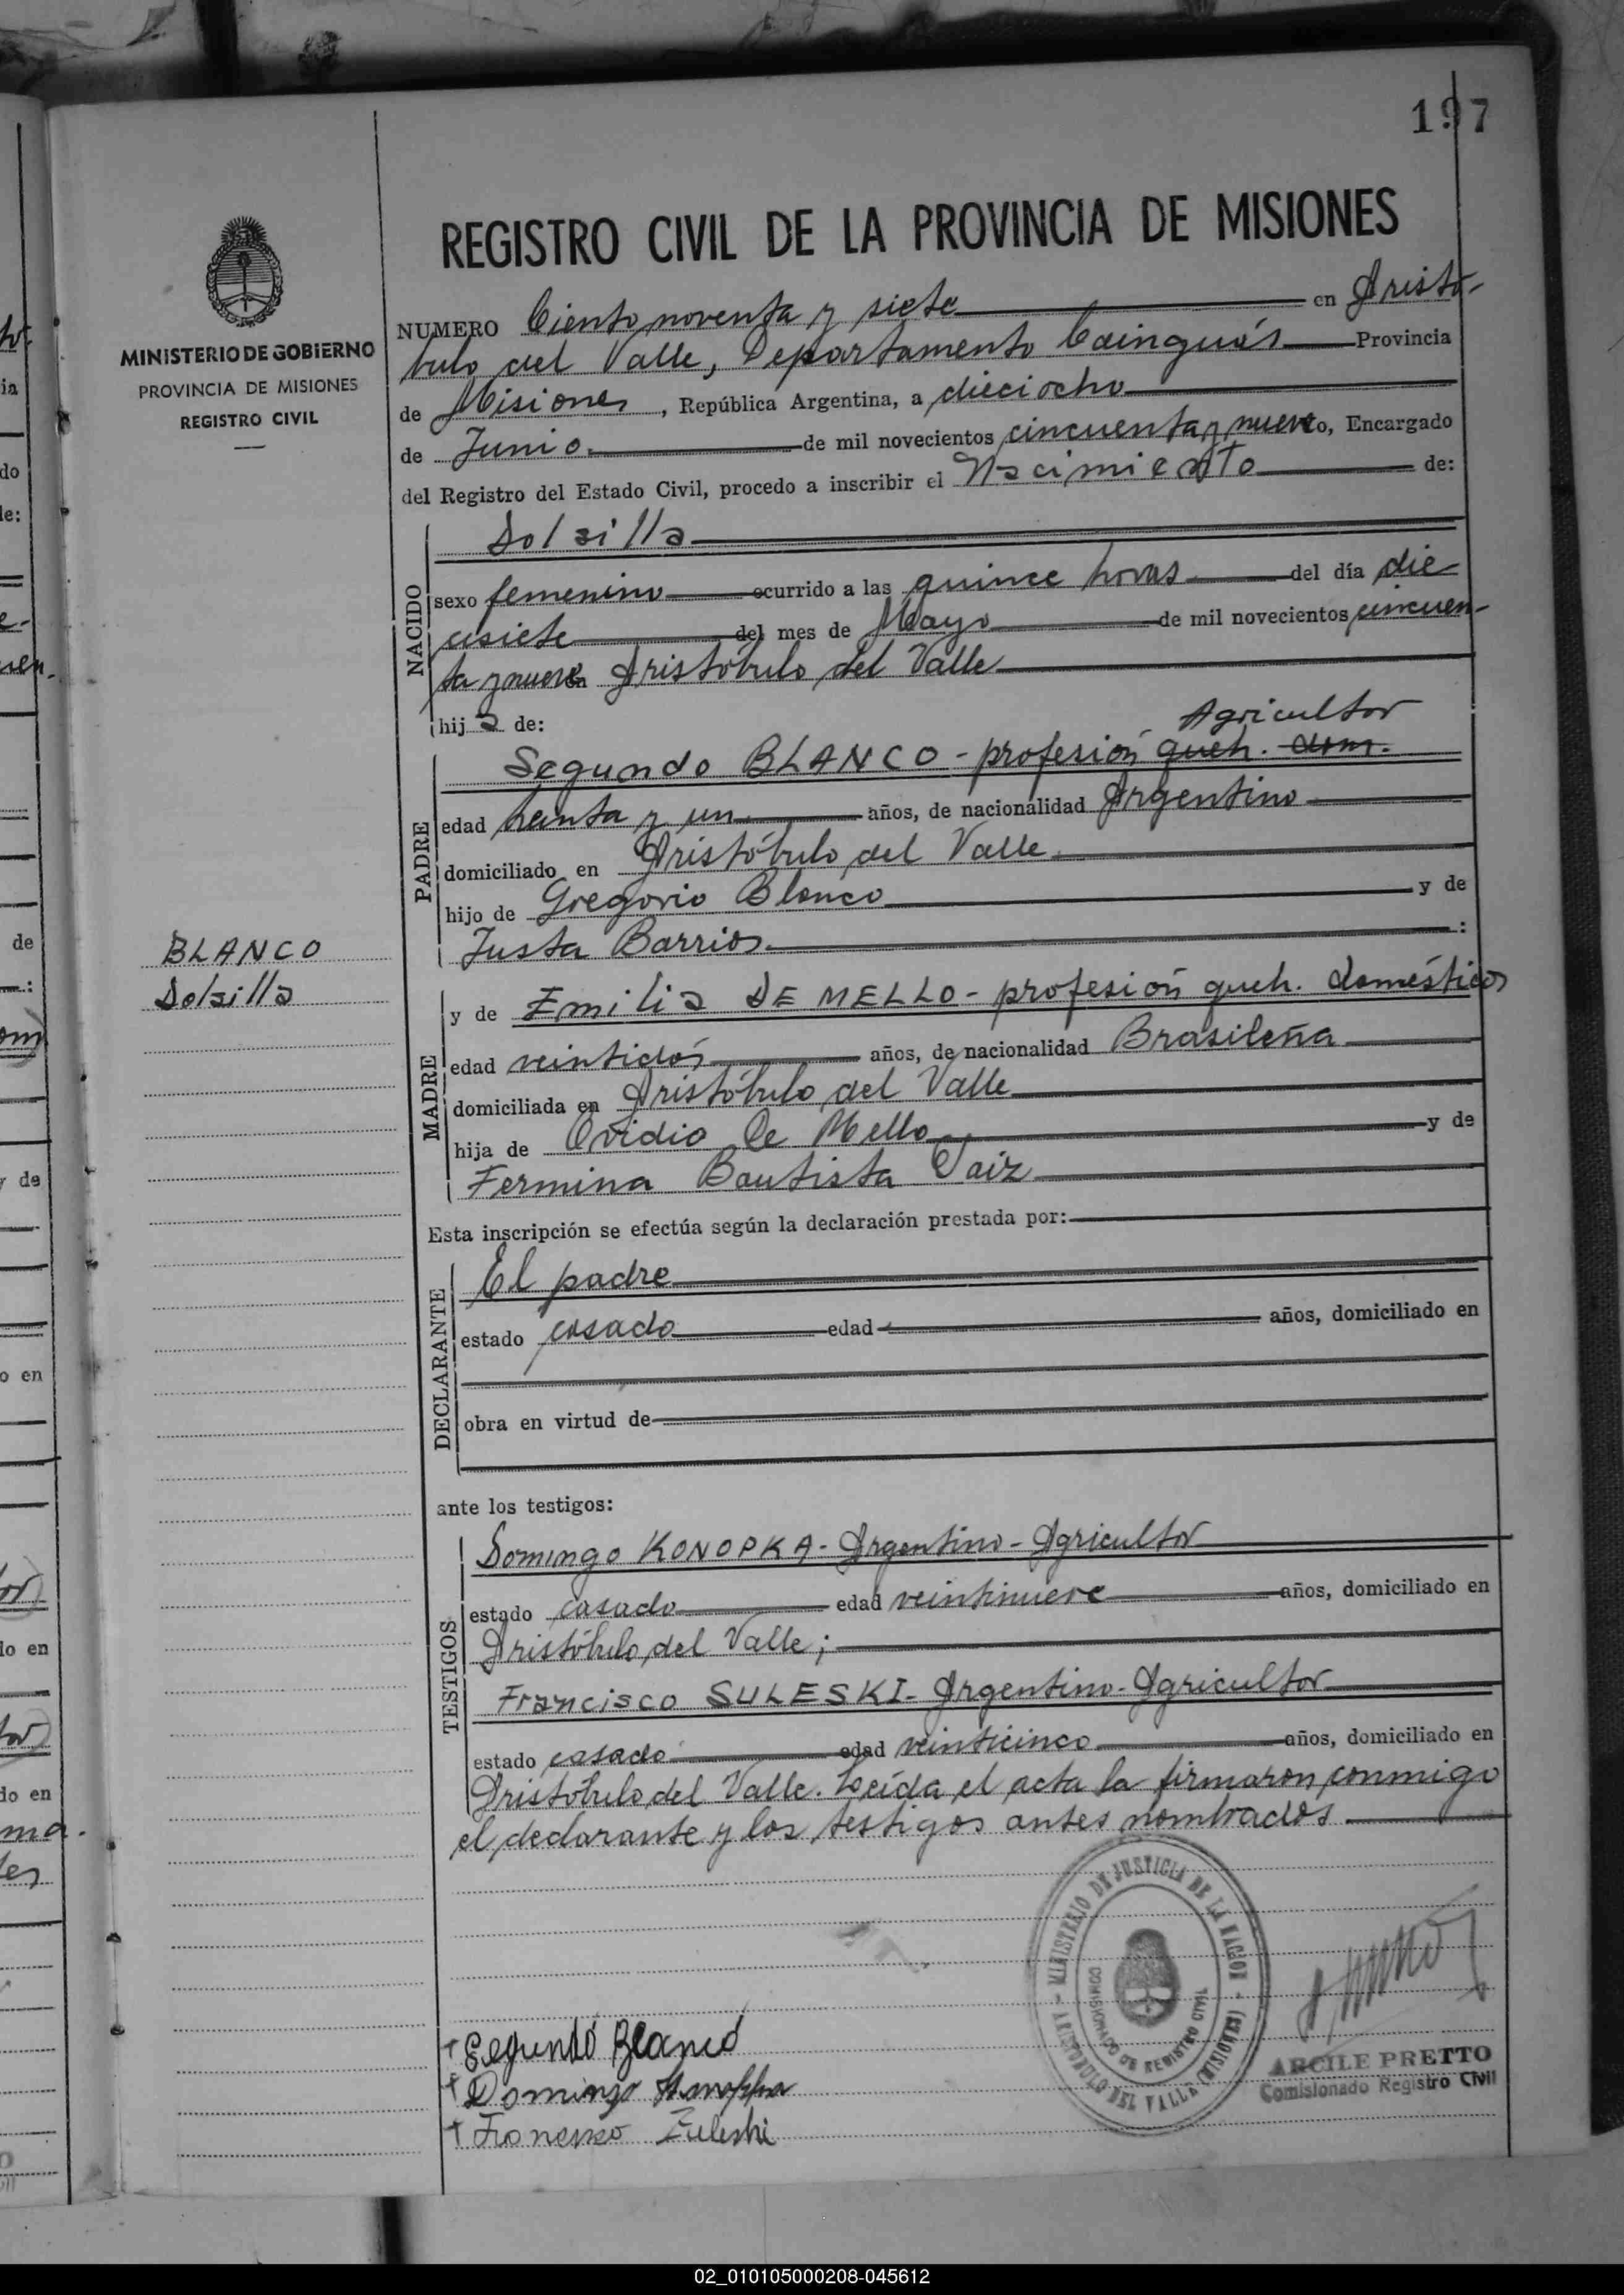 197
MINISTERIO DE GOBIERNO
PROVINCIA DE MISIONES
REGISTRO CIVIL
REGISTRO CIVIL DE LA PROVINCIA DE MISIONES
NUMERO Ciento noventa y siete en Aristó-
bulo del Valle, Departamento Cainguás Provincia
de Misiones, República Argentina, a dieciocho
de Junio de mil novecientos cincuenta y nueve, Encargado
del Registro del Estado Civil, procedo a inscribir el Nacimiento de:
NACIDO
Dolsilla
sexo femenino ocurrido a las quince horas del día die
cisiete del mes de Mayo de mil novecientos cincuen-
ta y nueve en Aristóbulo del Valle
hija de:
Agricultor
PADRE
Segundo BLANCO - profesión queh. dom.
edad treinta y un años, de nacionalidad Argentino
domiciliado en Aristóbulo del Valle
hijo de Gregorio Blanco y de
Justa Barrios :
BLANCO
Dolsilla
MADRE
y de Emilia DE MELLO - profesión queh. domésticos
edad veintidós años, de nacionalidad Brasileña
domiciliada en Aristóbulo del Valle
hija de Ovidio De Mello y de
Fermina Bautista Vaiz
Esta inscripción se efectúa según la declaración prestada por:
DECLARANTE
El padre
estado casado edad años, domiciliado en
obra en virtud de
ante los testigos:
TESTIGOS
Domingo KONOPKA - Argentino - Agricultor
estado casado edad veintinueve años, domiciliado en
Aristóbulo del Valle;
Francisco SULESKI - Argentino - Agricultor
estado casado edad veinticinco años, domiciliado en
Aristóbulo del Valle. Leída el acta la firmaron conmigo
el declarante y los testigos antes nombrados
MINISTERIO DE JUSTICIA DE LA NACION
COMISIONADO DE REGISTRO CIVIL
ARISTOBULO DEL VALLE (MISIONES)
Segundo Blanco
Domingo Konopka
Francisco Zuleski
ARCILE PRETTO
Comisionado Registro Civil
02_010105000208-045612